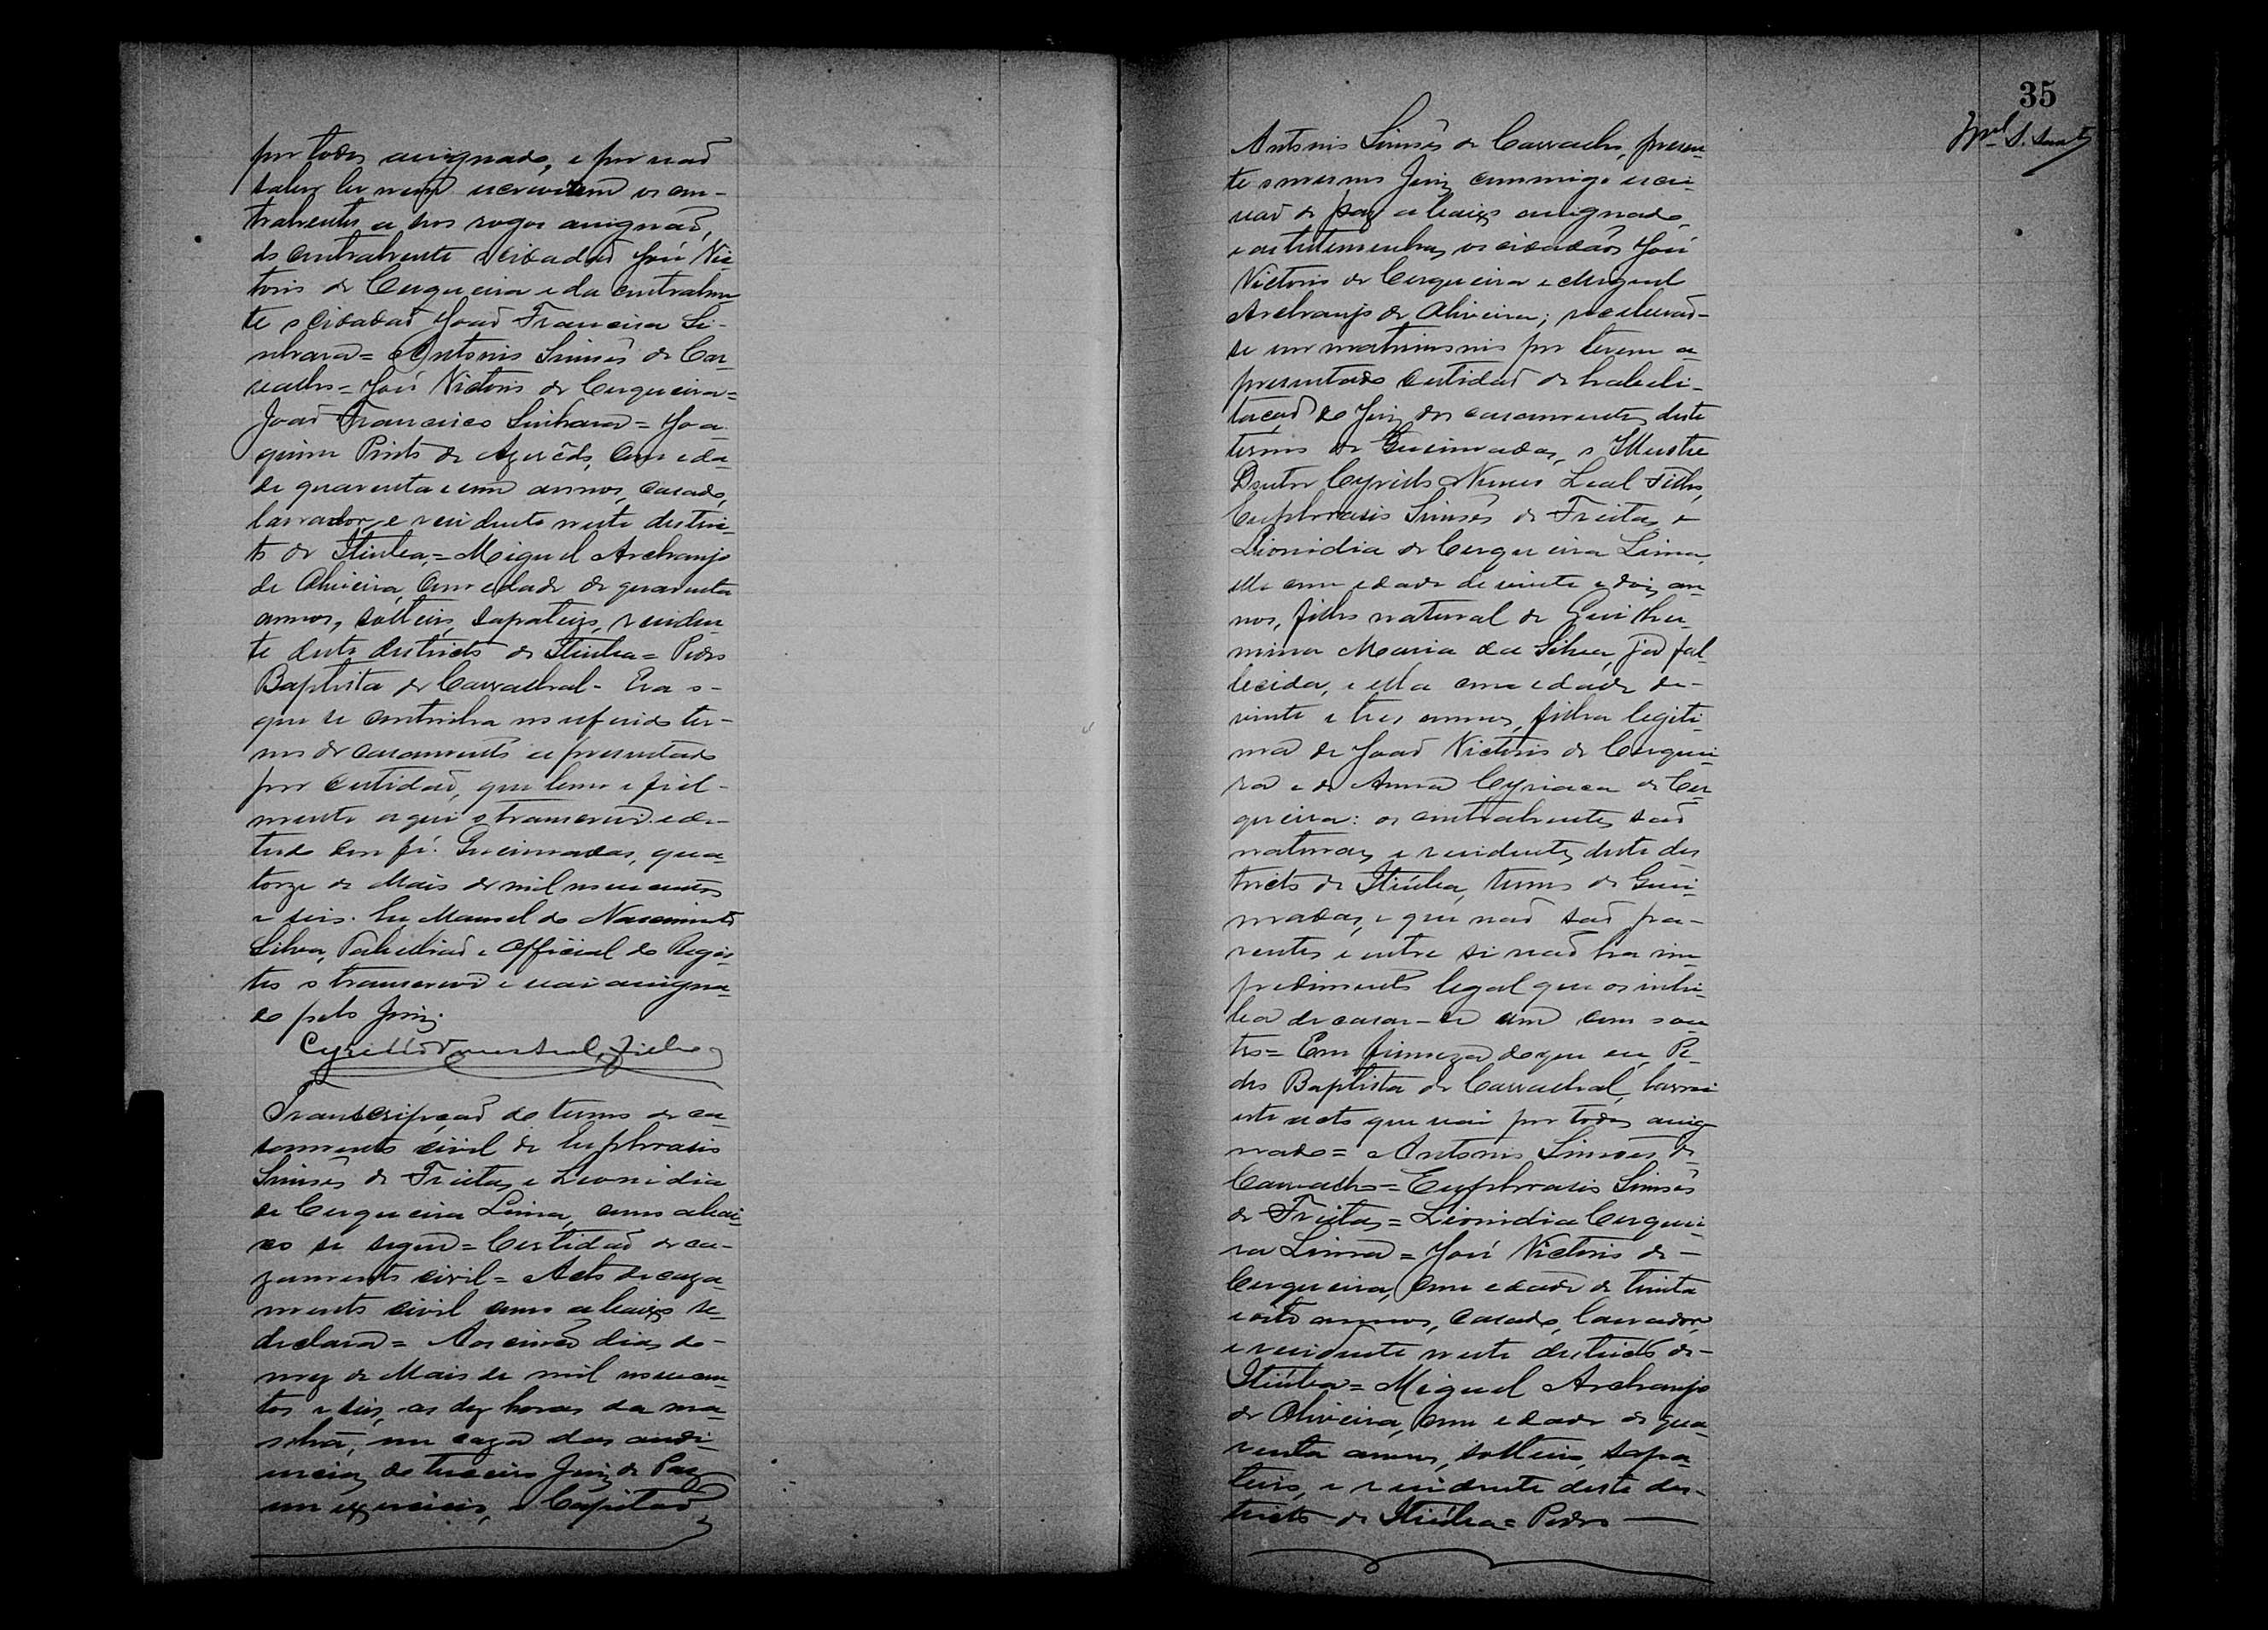 por todos assignado, e por naõ
saber ler nem escreverem os con-
trahentes a seos rogos assignaõ,
do contrahente o cidadaõ José Vic
torio de Cerqueira e da contrahen
te o cidadaõ Joaõ Francisco Si-
nharã = Antonio Simões de Car
valho = José Victorio de Cerqueira =
Joaõ Francisco Sinharã = Joa
quim Pinto de Azevêdo, com eda-
de quarenta e um annos, casado,
lavrador, e residente neste distric
to de Itiuba, = Miguel Archanjo
de Oliveira, com edade de quarenta
annos, solteiro, sapateiro, residen
te deste districto de Itiuba = Pedro
Baptista de Carvalhal - Era o -
que se continha no referido ter-
mo de casamento apresentado
por certidaõ, que bem e fiel -
mente aqui o transcrevi e de -
tudo dou fé. Queimadas, qua-
torze de Maio de mil novecentos
e seis. Eu Manoel do Nascimento
Silva, Tabelliaõ e Official do Regis
tro o transcrevi e vai assigna-
do pelo Juiz.
Cyrillo Nunes Leal, Filho
Transcripçaõ do termo de ca
samento civil de Euphrasio
Simões de Freitas e Leonidia
de Cerqueira Lima, como abai-
xo se segue = Certidaõ de ca-
zamento civil = Acto de caza
mento civil como abaixo se
declara = Aos cinco dias do -
mez de Maio de mil novecen
tos e seis, as dez horas da ma-
nhã, em caza das audi-
encias do terceiro Juiz de Paz
em exercicio, o Capitaõ
35
Antonio Simões de Carvalho, presen
te o mesmo Juiz commigo escri-
vaõ de paz abaixo assignado,
e as testemunhas os cidadãos José
Victorio de Cerqueira e Miguel
Archanjo de Oliveira; receberaõ-
se em matrimonio por terem a-
presentado certidaõ de habili-
taçaõ do Juiz dos casamentos deste
termo de Queimadas, o Illustre
Doutor Cyrillo Nunes Leal Filho,
Euphrasio Simões de Freitas e
Leonidia de Cerqueira Lima,
elle com edade de vinte e dois an
nos, filho natural de Guilher
mina Maria da Silva, já fal
lecida, e ella com edade de -
vinte e tres annos, filha legiti
ma de Joaõ Victorio de Cerquei
ra e de Anna Cyriaca de Cer
queira: os contrahentes saõ
naturaes e residentes deste dis
tricto de Itiúba, termo de Quei
madas, e que naõ saõ pa-
rentes e entre si naõ ha im
pedimento legal que os inhi
ba de casar-se um com o ou
tro = Em firmeza do que eu, Pe-
dro Baptista de Carvalhal, lavrei
este acto que vai por todos assig
nado = Antonio Simões de
Carvalho = Euphrasio Simões
de Freitas = Leonidia Cerquei
ra Lima = José Victorio de -
Cerqueira, com edade de trinta
e oito annos, casado, lavrador,
e residente neste districto de -
Itiúba = Miguel Archanjo
de Oliveira, com edade de qua
renta annos, solteiro, sapa
teiro, e residente deste dis-
tricto de Itiúba = Pedro